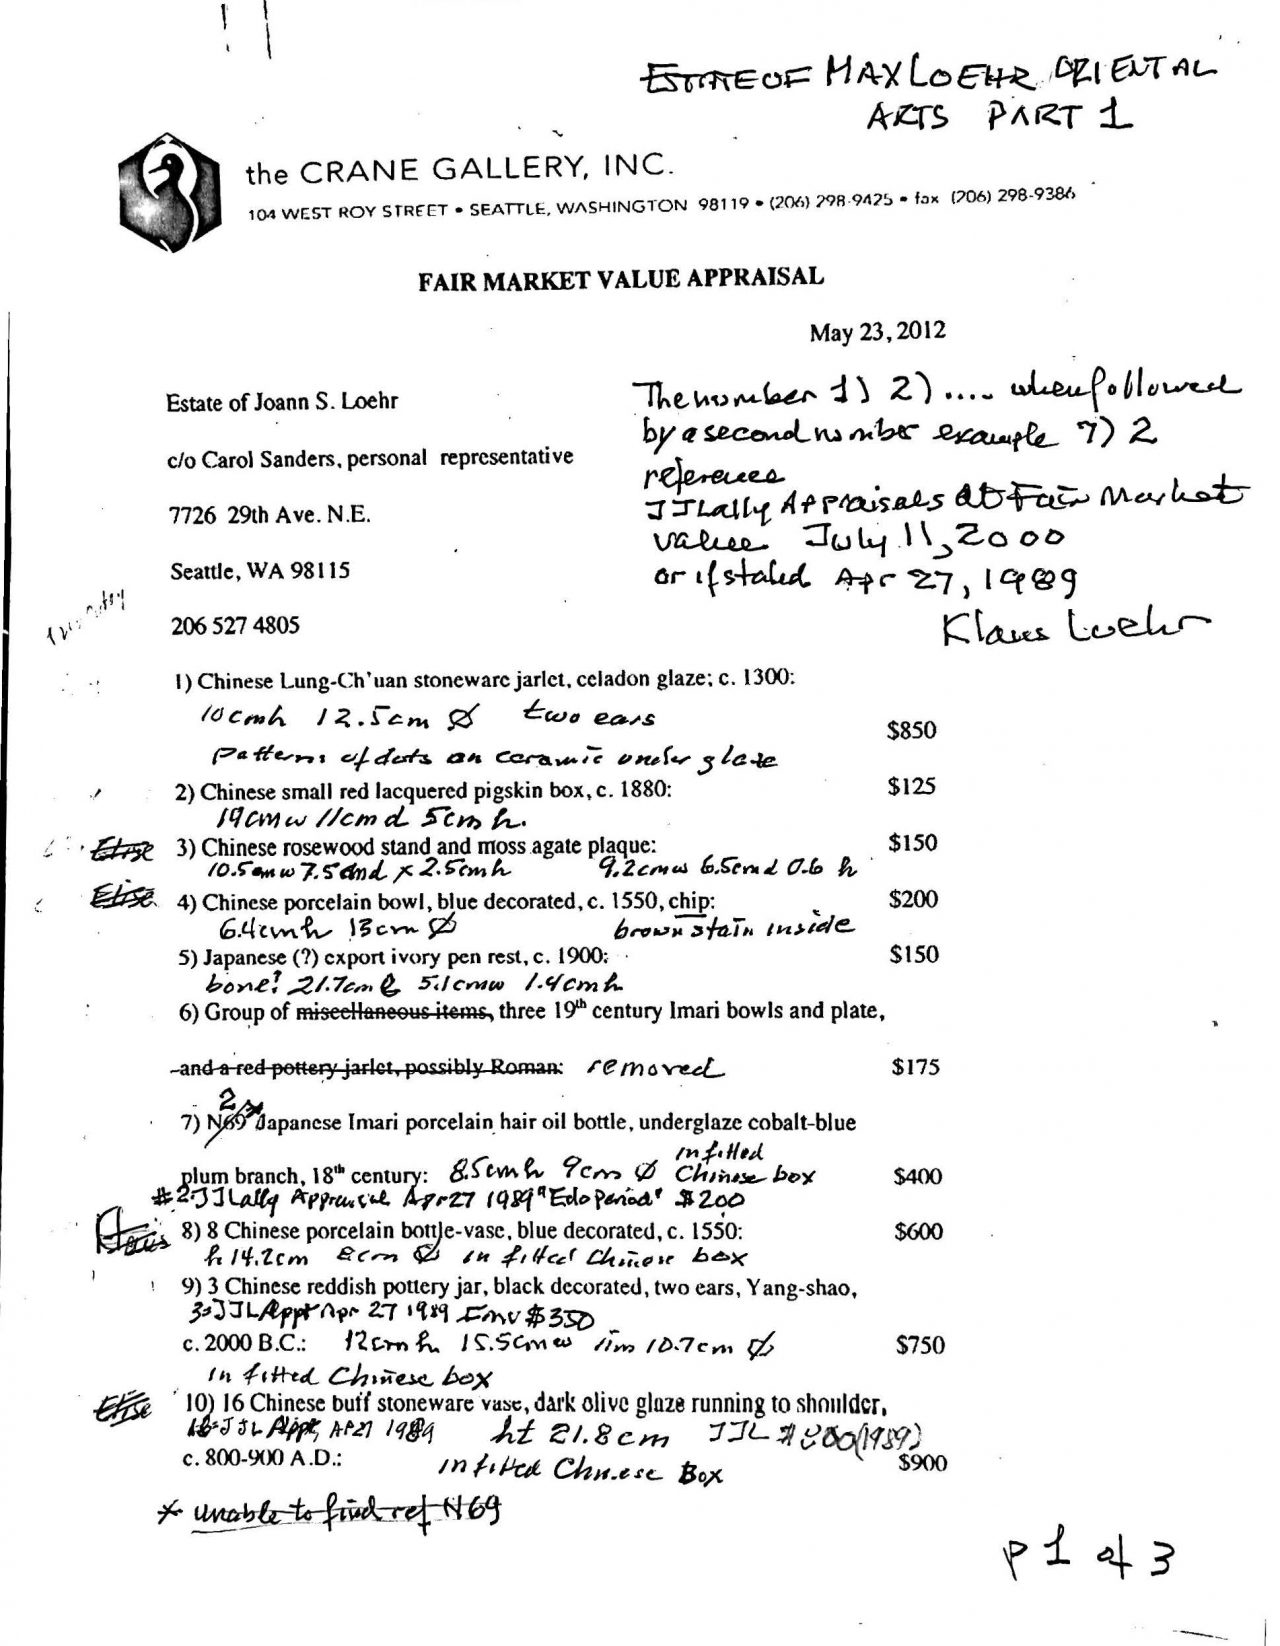 ESTATE OF MAX LOEHR ORIENTAL
ARTS PART 1
the CRANE GALLERY, INC.
104 WEST ROY STREET • SEATTLE, WASHINGTON 98119 • (206) 298-9425 • fax (206) 298-9386
FAIR MARKET VALUE APPRAISAL
May 23, 2012
Estate of Joann S. Loehr
c/o Carol Sanders, personal representative
7726 29th Ave. N.E.
Seattle, WA 98115
206 527 4805
The number 1) 2) .... when followed
by a second number example 7) 2
references
JJLally Appraisals at Fair Market
value July 11, 2000
or if stated Apr 27, 1989
Klaus Loehr
1) Chinese Lung-Ch'uan stoneware jarlet, celadon glaze; c. 1300:
10cmh 12.5cm Ø two ears
$850
Patterns of dots on ceramic under glaze
2) Chinese small red lacquered pigskin box, c. 1880: $125
19cmw 11cmd 5cmh.
Elise 3) Chinese rosewood stand and moss agate plaque: $150
10.5cmw 7.5cmd x 2.5cmh 9.2cmw 6.5cmd 0.6 h
Elise 4) Chinese porcelain bowl, blue decorated, c. 1550, chip: $200
6.4cmh 13cm Ø brown stain inside
5) Japanese (?) export ivory pen rest, c. 1900: $150
bone? 21.7cm l 5.1cmw 1.4cmh
6) Group of miscellaneous items, three 19th century Imari bowls and plate,
and a red pottery jarlet, possibly Roman: removed $175
2
7) N69* Japanese Imari porcelain hair oil bottle, underglaze cobalt-blue
in fitted
plum branch, 18th century: 8.5cmh 9cm Ø Chinese box $400
#2-JJLally Appraisal Apr 27 1989 "Edo Period" $200
8) 8 Chinese porcelain bottle-vase, blue decorated, c. 1550: $600
h 14.2cm 8cm Ø in fitted Chinese box
9) 3 Chinese reddish pottery jar, black decorated, two ears, Yang-shao,
3=JJL Appt Apr 27 1989 Fmv $350
c. 2000 B.C.: 12cmh 15.5cmw rim 10.7cm Ø $750
in fitted Chinese box
Elise 10) 16 Chinese buff stoneware vase, dark olive glaze running to shoulder,
16=JJL Appt, AP27 1989 ht 21.8cm JJL $800 (1989)
c. 800-900 A.D.: in fitted Chinese Box $900
* unable to find ref N69
p 1 of 3